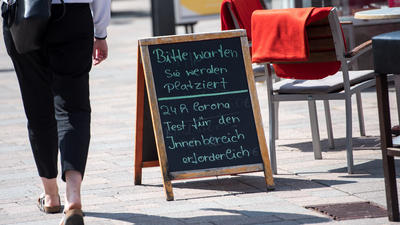 Bitte warten
Sie werden
platziert
24 h Corona
Test für den
Innenbereich
erforderlich